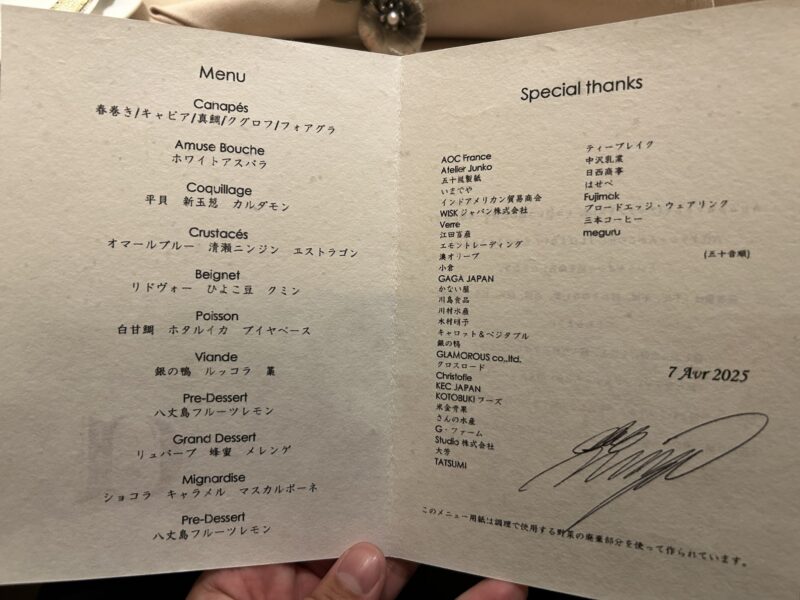 Menu
Canapés
春巻き/キャビア/真鯛/クグロフ/フォアグラ
Amuse Bouche
ホワイトアスパラ
Coquillage
平貝 新玉葱 カルダモン
Crustacés
オマールブルー 清瀬ニンジン エストラゴン
Beignet
リドヴォー ひよこ豆 クミン
Poisson
白甘鯛 ホタルイカ ブイヤベース
Viande
銀の鴨 ルッコラ 菫
Pre-Dessert
八丈島フルーツレモン
Grand Dessert
リュバーブ 蜂蜜 メレンゲ
Mignardise
ショコラ キャラメル マスカルポーネ
Pre-Dessert
八丈島フルーツレモン
Special thanks
AOC France
Atelier Junko
五十嵐製紙
いまでや
インドアメリカン貿易商会
WISK ジャパン株式会社
Verre
江田畜産
エモントレーディング
澳オリーブ
小倉
GAGA JAPAN
かない屋
川島食品
川村水産
木村明子
キャロット&ベジタブル
銀の鴨
GLAMOROUS co.,ltd.
クロスロード
Christofle
KEC JAPAN
KOTOBUKI フーズ
米金青果
さんの水産
G・ファーム
Studio 株式会社
大芳
TATSUMI
ティーブレイク
中沢乳業
日西商事
はせべ
Fujimak
ブロードエッジ・ウェアリンク
三本コーヒー
meguru
(五十音順)
7 Avr 2025
このメニュー用紙は調理で使用する野菜の廃棄部分を使って作られています。